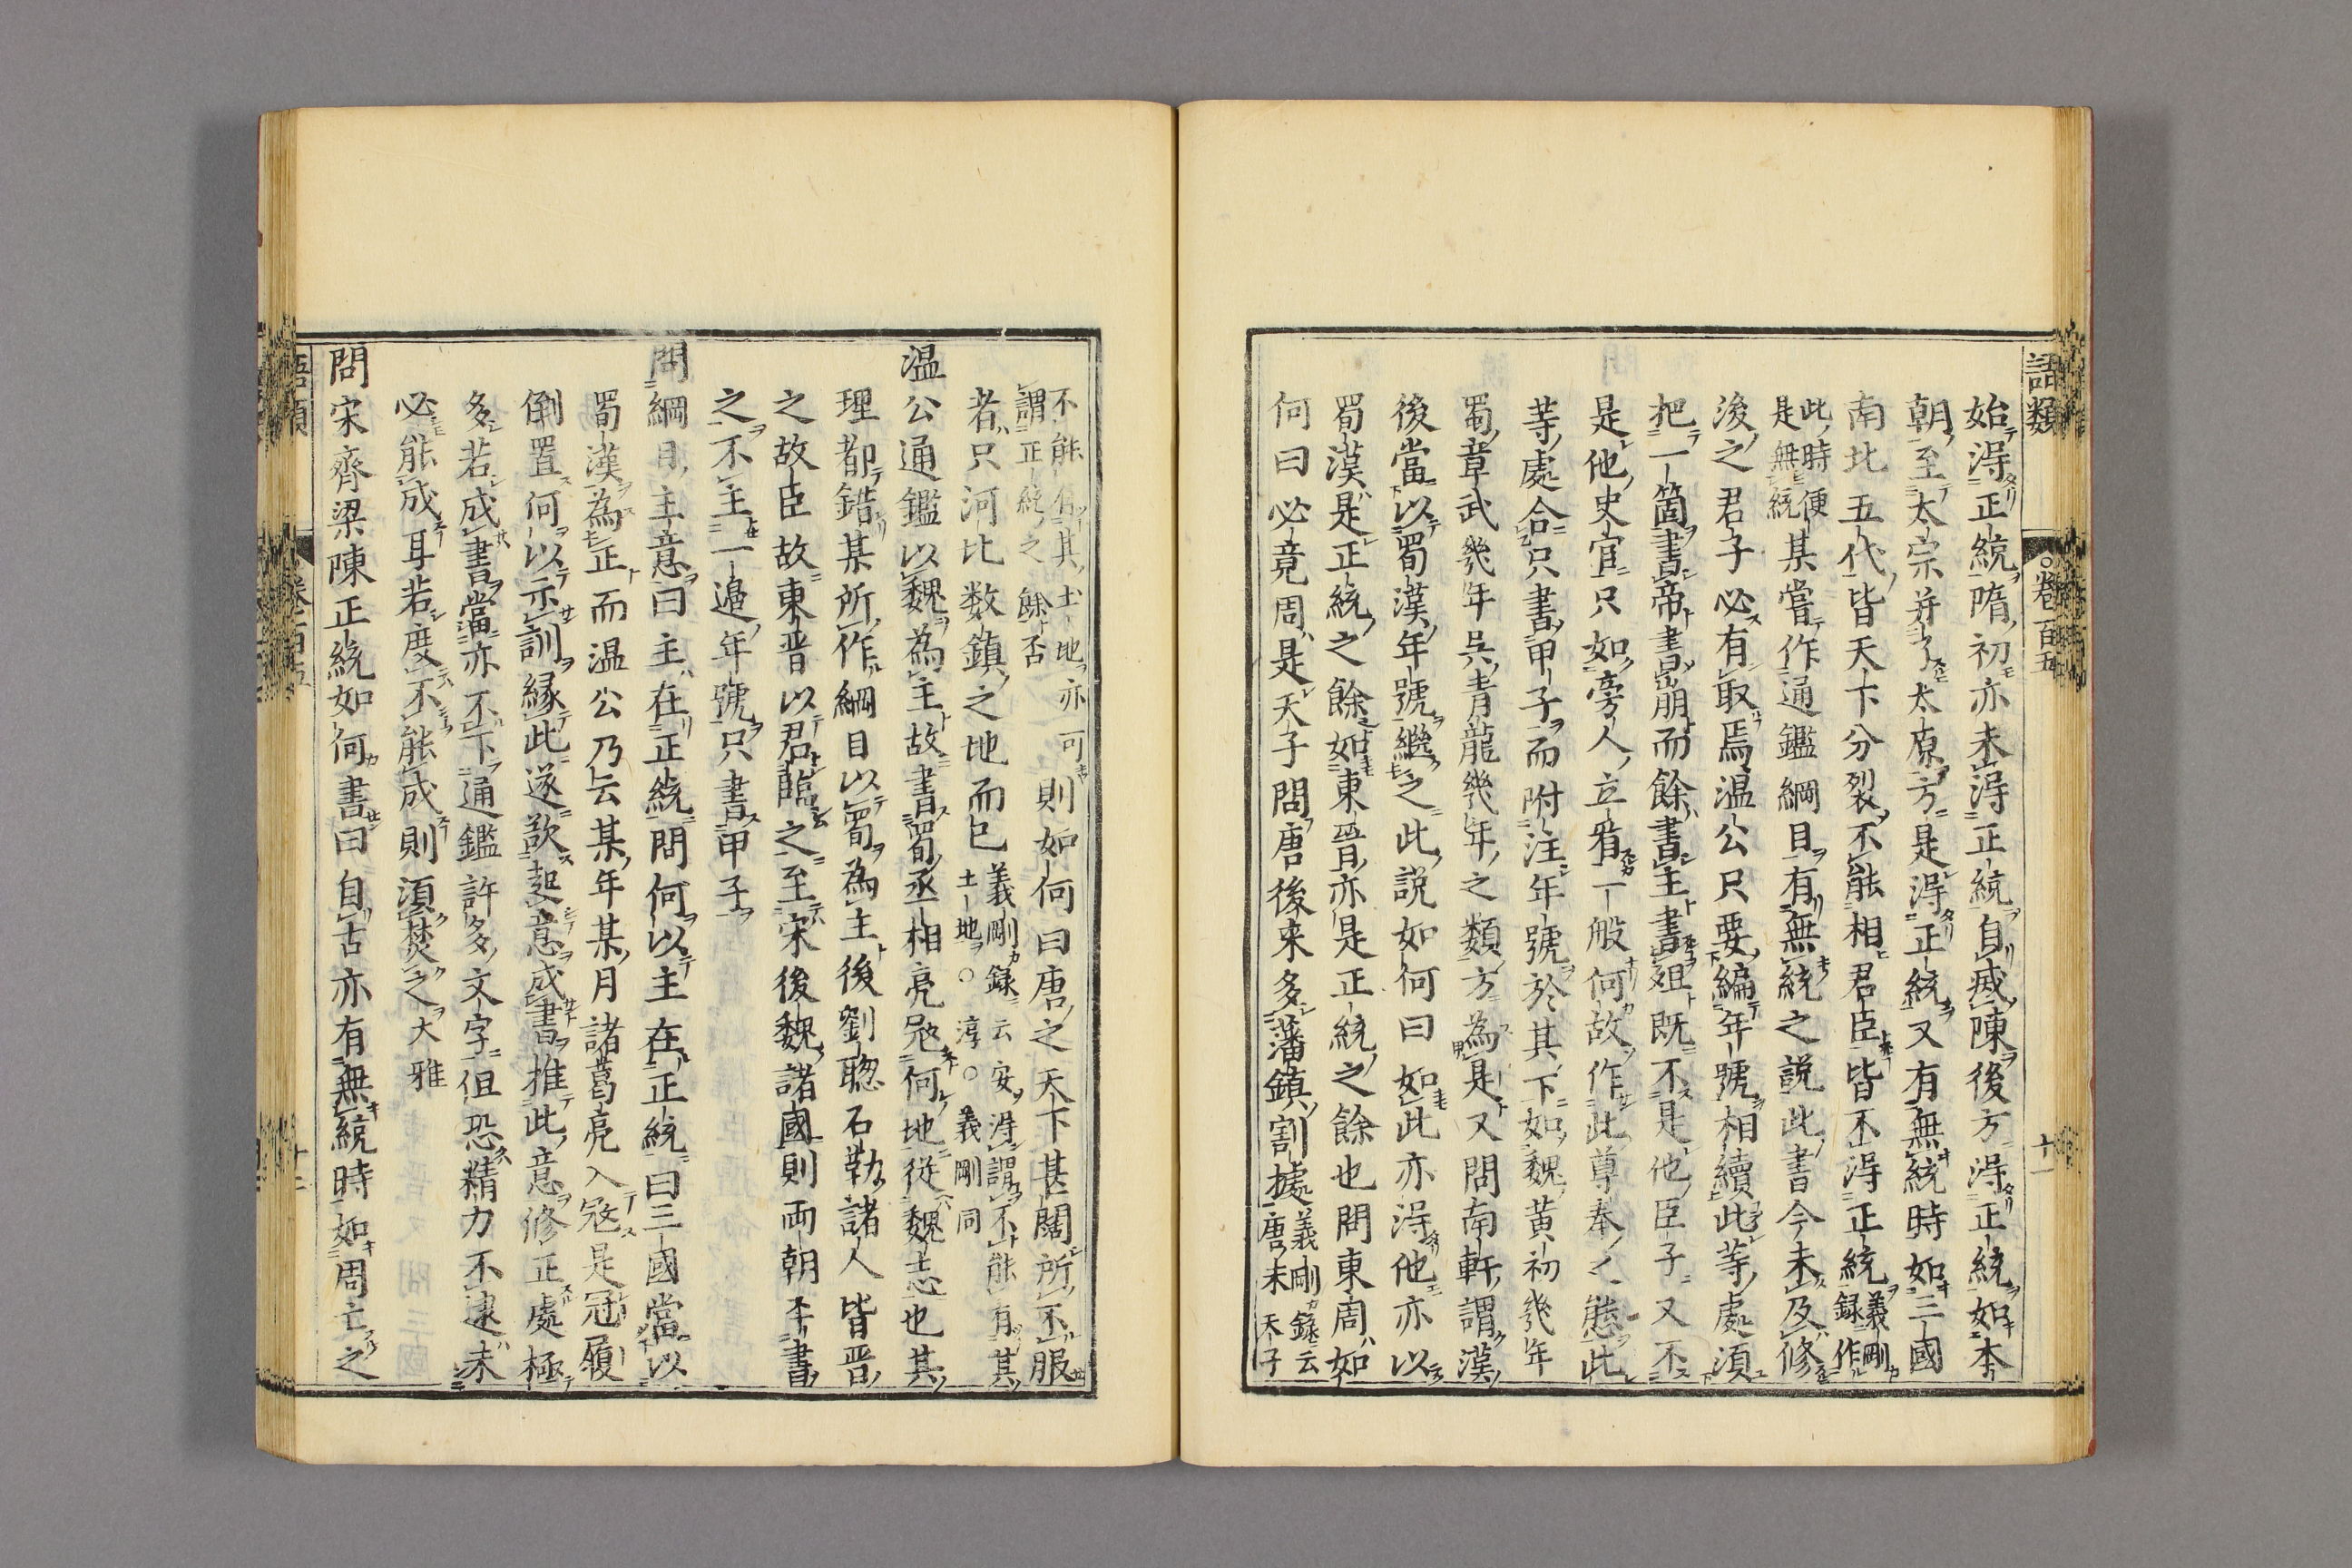 語類
○卷一百五
十一
始得正統隋初亦未得正統自滅陳後方得正統如本
朝至太宗并了太原方是得正統又有無統時如三國
南北五代皆天下分裂不能相君臣皆不得正統義剛錄作
此時便是無統某嘗作通鑑綱目有無統之說此書今未及修
後之君子必有取焉溫公只要編年號相續此等處須
把一箇書帝書崩而餘書主書殂既不是他臣子又不
是他史官只如旁人立看一般何故作此尊奉之態此
等處合只書甲子而附注年號於其下如魏黃初幾年
蜀章武幾年吳青龍幾年之類方為是又問南軒謂漢
後當以蜀漢年號繼之此說如何曰如此亦得他亦以
蜀漢是正統之餘如東晉亦是正統之餘也問東周如
何曰必竟周是天子問唐後來多藩鎮割據義剛錄云唐末天子
不能有其土地亦可謂正統之餘否則如何曰唐之天下甚闊所不服
者只河北数鎮之地而已義剛錄云安得謂不能有其土地○淳○義剛同
溫公通鑑以魏為主故書蜀丞相亮冦何地從魏志也其
理都錯某所作綱目以蜀為主後劉聰石勒諸人皆晉
之故臣故東晉以君臨之至宋後魏諸國則両朝平書
之不主一邊年號只書甲子
問綱目主意曰主在正統問何以主在正統曰三國當以
蜀漢為正而溫公乃云某年某月諸葛亮入冦是冠履
倒置何以示訓緣此遂欲起意成書推此意修正處極
多若成書當亦不下通鑑許多文字但恐精力不逮未
必能成耳若度不能成則須焚之大雅
問宋齊梁陳正統如何書曰自古亦有無統時如周亡之
語類
卷一百五
十二